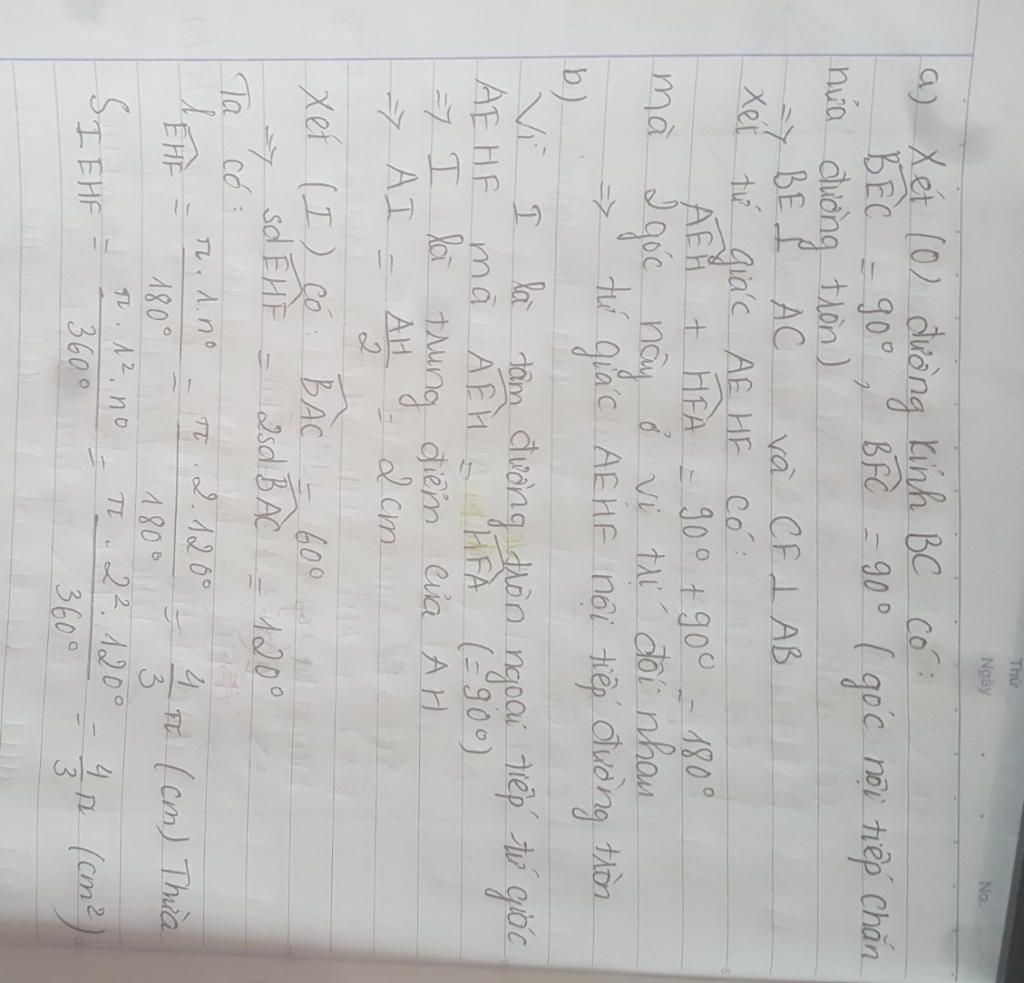 Thứ
Ngày . . No.
a) Xét (O) đường kính BC có:
BEC = 90°, BFC = 90° (góc nội tiếp chắn
nửa đường tròn)
=> BE ⊥ AC và CF ⊥ AB
Xét tứ giác AEHF có:
AEH + HFA = 90° + 90° = 180°
mà 2 góc này ở vị trí đối nhau
=> tứ giác AEHF nội tiếp đường tròn
b)
Vì I là tâm đường tròn ngoại tiếp tứ giác
AEHF mà AEH = HFA (=90°)
=> I là trung điểm của AH
=> AI = AH/2 = 2cm
Xét (I) có: BAC = 60°
=> sđEHF = 2sđBAC = 120°
Ta có:
l EHF = π.1.n°/180° = π.2.120°/180° = 4/3 π (cm) Thừa
S IEHF = π.1².n°/360° = π.2².120°/360° = 4/3 π (cm²)